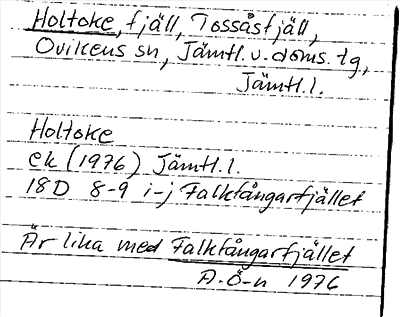 Holtoke, fjäll, Tossåsfjäll,
Ovikens sn, Jämtl. v. doms. tg,
Jämtl. l.
Holtoke
ek (1976) Jämtl. l.
18D 8-9 i-j Falkfångarfjället
Är lika med Falkfångarfjället
A. Ö-n 1976